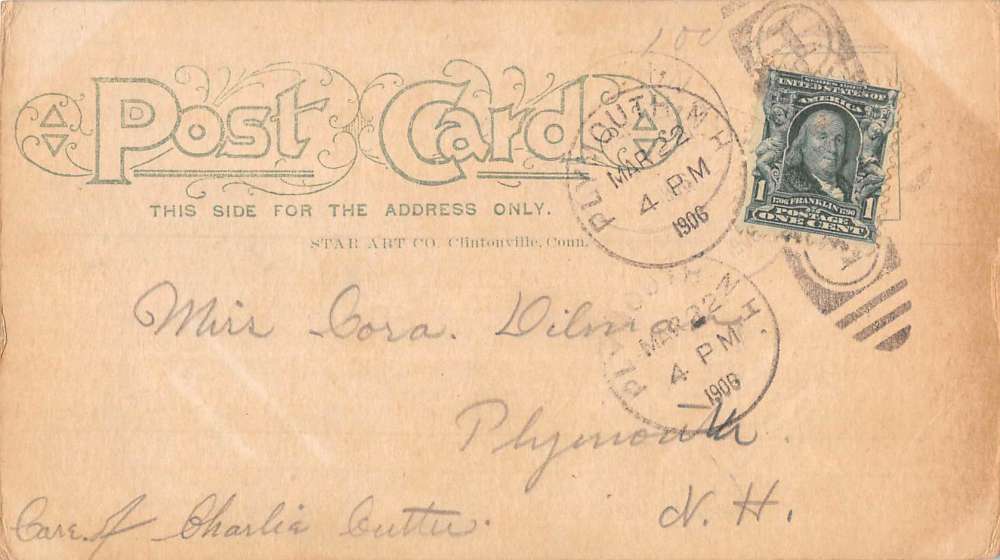 100
Post Card
THIS SIDE FOR THE ADDRESS ONLY.
STAR ART CO. Clintonville, Conn.
PLYMOUTH N.H
MAR 22
4 PM
1906
SERIES 1902
UNITED STATES OF
AMERICA
1 1706 FRANKLIN 1790 1
POSTAGE
ONE CENT
PLYMOUTH N.H
MAR 22
4 PM
1906
Miss Cora. Dilmore
Plymouth.
N. H.
Care. of Charlie Cutter.